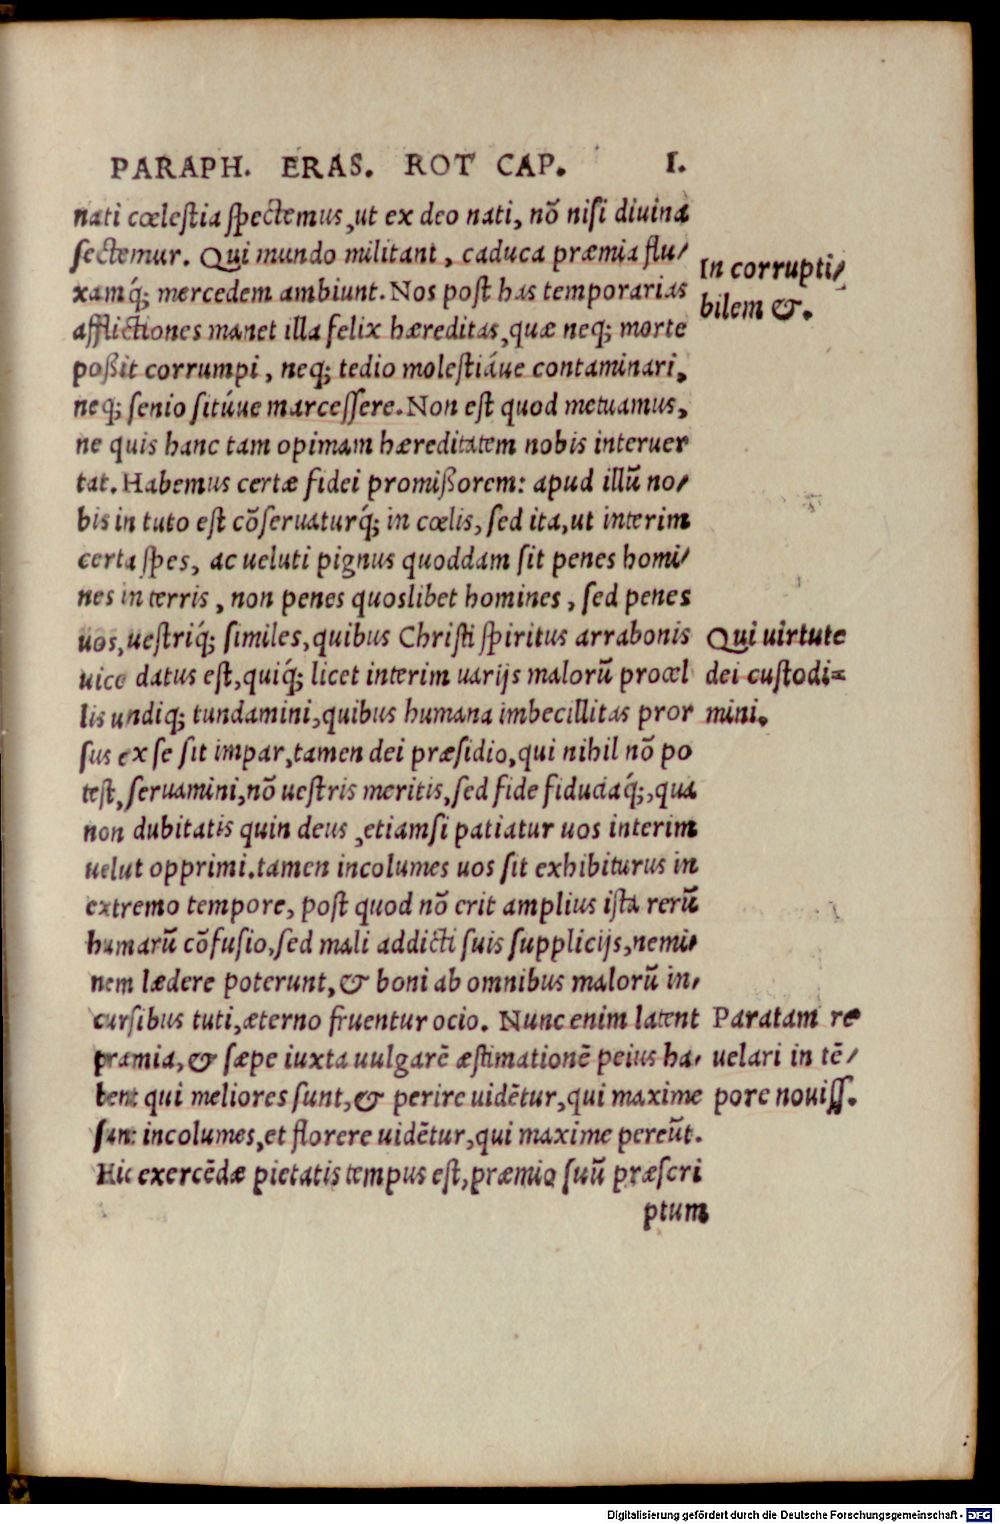 PARAPH. ERAS. ROT CAP. I.
nati cœlestia spectemus, ut ex deo nati, nõ nisi diuina
sectemur. Qui mundo militant, caduca præmia flu/
xamq́; mercedem ambiunt. Nos post has temporarias
afflictiones manet illa felix hæreditas, quæ neq; morte
poßit corrumpi, neq; tedio molestiáue contaminari,
neq; senio sitúue marcessere. Non est quod metuamus,
ne quis hanc tam opimam hæreditatem nobis interuer
tat. Habemus certæ fidei promißorem: apud illũ no/
bis in tuto est cõseruaturq́; in cœlis, sed ita, ut interim
certa spes, ac ueluti pignus quoddam sit penes homi/
nes in terris, non penes quoslibet homines, sed penes
uos, uestriq́; similes, quibus Christi spiritus arrabonis
uice datus est, quiq́; licet interim uarijs malorũ procel
lis undiq; tundamini, quibus humana imbecillitas pror
sus ex se sit impar, tamen dei præsidio, qui nihil nõ po
test, seruamini, nõ uestris meritis, sed fide fiduciaq́;, qua
non dubitatis quin deus, etiamsi patiatur uos interim
uelut opprimi. tamen incolumes uos sit exhibiturus in
extremo tempore, post quod nõ erit amplius ista rerũ
humarũ cõfusio, sed mali addicti suis supplicijs, nemi/
nem lædere poterunt, & boni ab omnibus malorũ in/
cursibus tuti, æterno fruentur ocio. Nunc enim latent
præmia, & sæpe iuxta uulgarē æstimationē peius ha/
bent qui meliores sunt, & perire uidētur, qui maxime
sunt incolumes, et florere uidētur, qui maxime pereũt.
Hic exercēdæ pietatis tempus est, præmio suũ præscri
ptum
In corrupti/
bilem &.
Qui uirtute
dei custodi=
mini.
Paratam re
uelari in tē/
pore nouiss.
Digitalisierung gefördert durch die Deutsche Forschungsgemeinschaft - DFG